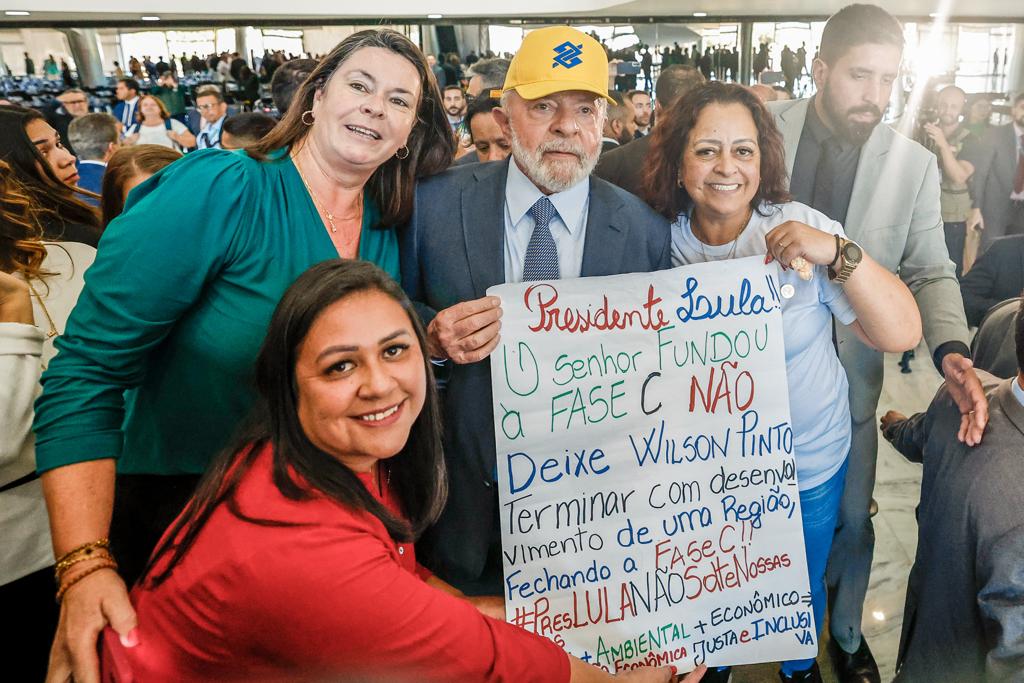 Presidente Lula!!
O senhor FUNDOU
a FASE C NÃO
DEIXE WILSON PINTO
Terminar com desenvol
vimento de uma Região,
Fechando a FASE C!!
#PresLULANÃOSolteNossas
+ AMBIENTAL + ECONÔMICO =
ECONÔMICA JUSTA e INCLUSI
VA